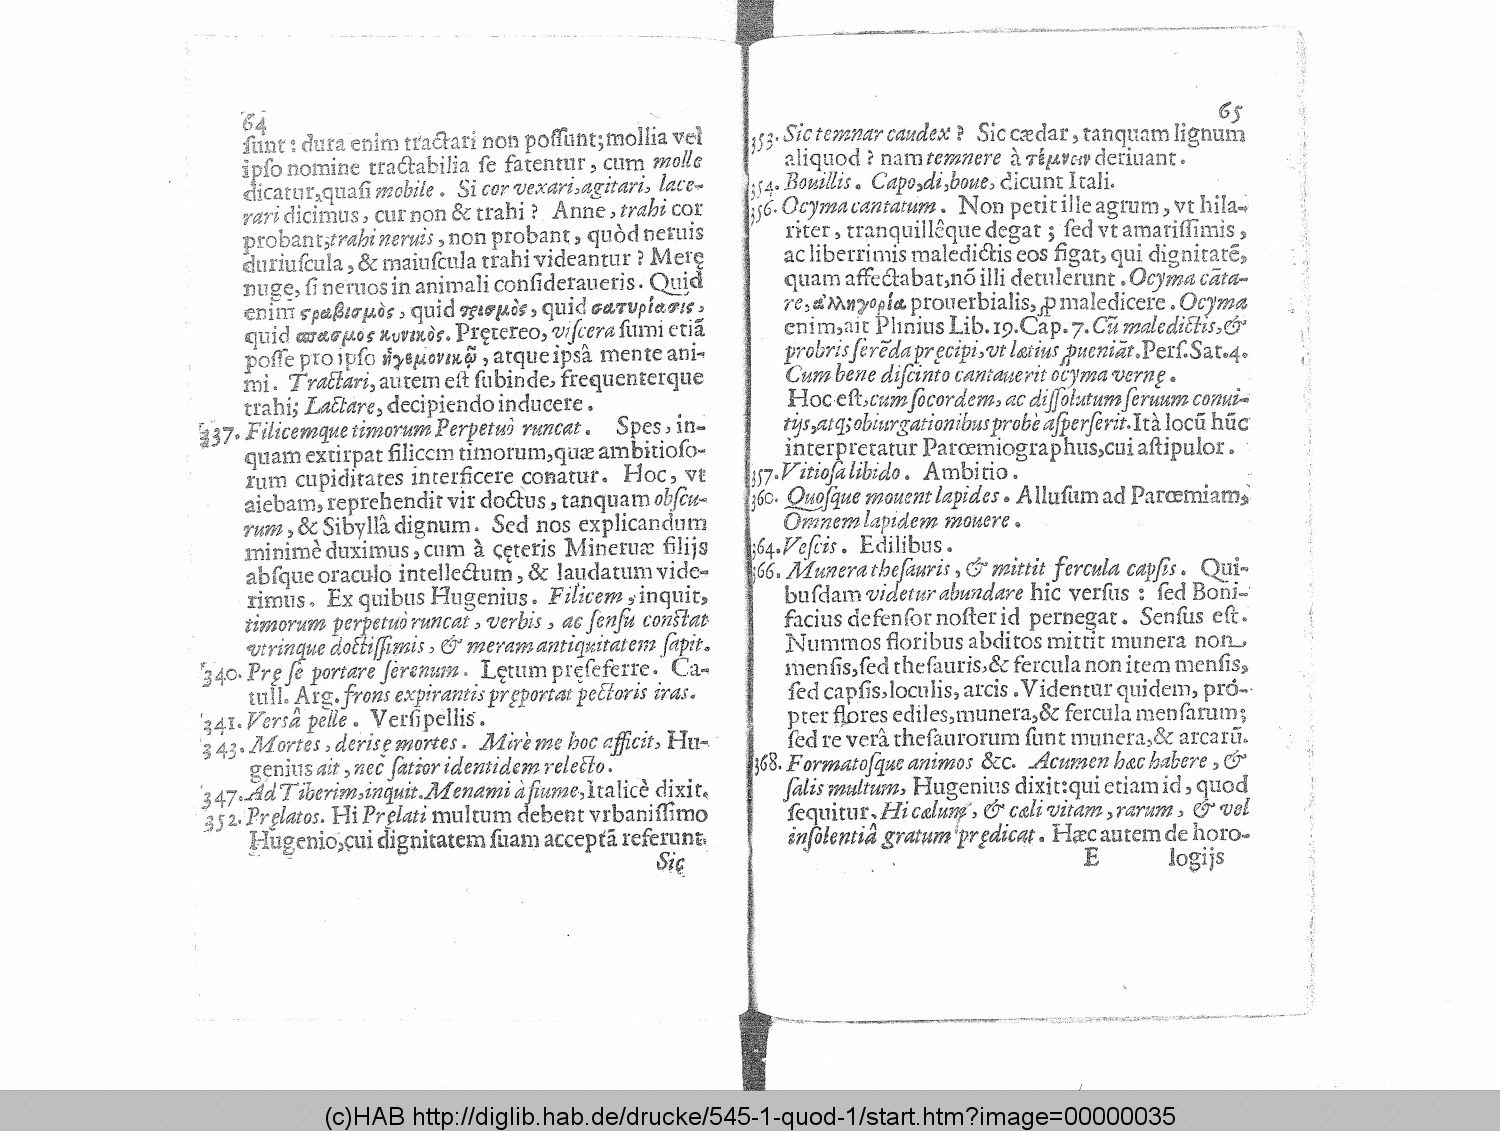 64
sunt: dura enim tractari non possunt; mollia vel
ipso nomine tractabilia se fatentur, cum molle
dicatur, quasi mobile. Si cor vexari, agitari, lace-
rari dicimus, cur non & trahi? Anne, trahi cor
probant; trahi neruis, non probant, quòd neruis
duriuscula, & maiuscula trahi videantur? Merę
nugę, si neruos in animali consideraueris. Quid
enim ςραβισμὸς, quid τρισμὸς, quid σατυρίασις,
quid σπασμος κυνικὸς. Prętereo, viscera sumi etiã
posse pro ipso ἡγεμονικῷ, atque ipsâ mente ani-
mi. Tractari, autem est subinde, frequenterque
trahi; Lactare, decipiendo inducere.
337. Filicemque timorum Perpetuò runcat. Spes, in-
quam extirpat filicem timorum, quæ ambitioso-
rum cupiditates interficere conatur. Hoc, vt
aiebam, reprehendit vir doctus, tanquam obscu-
rum, & Sibyllâ dignum. Sed nos explicandum
minimè duximus, cum à çęteris Mineruæ filijs
absque oraculo intellectum, & laudatum vide-
rimus. Ex quibus Hugenius. Filicem, inquit,
timorum perpetuò runcat, verbis, ac sensu constat
vtrinque doctissimis, & meram antiquitatem sapit.
340. Prę se portare serenum. Lętum pręseferre. Ca-
tull. Arg. frons expirantis pręportat pectoris iras.
341. Versâ pelle. Versipellis.
343. Mortes, derisę mortes. Mirè me hoc afficit, Hu-
genius ait, nec satior identidem relecto.
347. Ad Tiberim, inquit. Menami à fiume, Italicè dixit.
352. Pręlatos. Hi Pręlati multum debent vrbanissimo
Hugenio, cui dignitatem suam acceptã referunt.
Sic
65
353. Sic temnar caudex? Sic cædar, tanquam lignum
aliquod? nam temnere à τέμνειν deriuant.
354. Bouillis. Capo, di, boue, dicunt Itali.
356. Ocyma cantatum. Non petit ille agrum, vt hila-
riter, tranquillêque degat; sed vt amarissimis,
ac liberrimis maledictis eos figat, qui dignitatẽ,
quam affectabat, nõ illi detulerunt. Ocyma cãta-
re, ἀλληγορία prouerbialis, ꝓ maledicere. Ocyma
enim, ait Plinius Lib. 19. Cap. 7. Cũ maledictis, &
probris serẽda pręcipi, vt lætius ꝓueniãt. Pers. Sat. 4.
Cum bene discincto cantauerit ocyma vernę.
Hoc est, cum socordem, ac dissolutum seruum conui-
tijs, atq; obiurgationibus probè asperserit. Ità locũ hũc
interpretatur Parœmiographus, cui astipulor.
357. Vitiosa libido. Ambitio.
360. Quosque mouent lapides. Allusum ad Parœmiam,
Omnem lapidem mouere.
364. Vescis. Edilibus.
366. Munera thesauris, & mittit fercula capsis. Qui-
busdam videtur abundare hic versus: sed Boni-
facius defensor noster id pernegat. Sensus est.
Nummos floribus abditos mittit munera non
mensis, sed thesauris, & fercula non item mensis,
sed capsis, loculis, arcis. Videntur quidem, pro-
pter flores ediles, munera, & fercula mensarum;
sed re verâ thesaurorum sunt munera, & arcarũ.
368. Formatosque animos &c. Acumen hæc habere, &
salis multum, Hugenius dixit: qui etiam id, quod
sequitur, Hi cælumq́;, & cæli vitam, rarum, & vel
insolentiâ gratum prędicat. Hæc autem de horo-
E logijs
(c)HAB http://diglib.hab.de/drucke/545-1-quod-1/start.htm?image=00000035